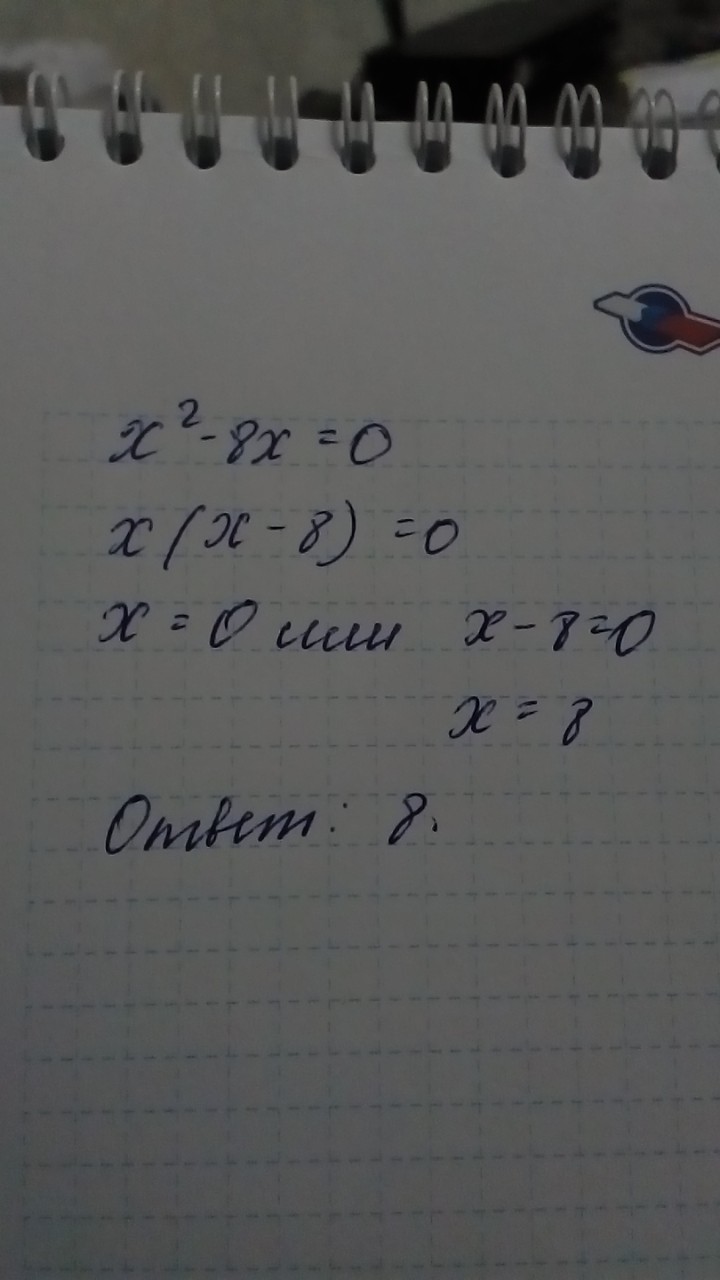 x² - 8x = 0
x(x - 8) = 0
x = 0 или x - 8 = 0
x = 8
Ответ: 8.